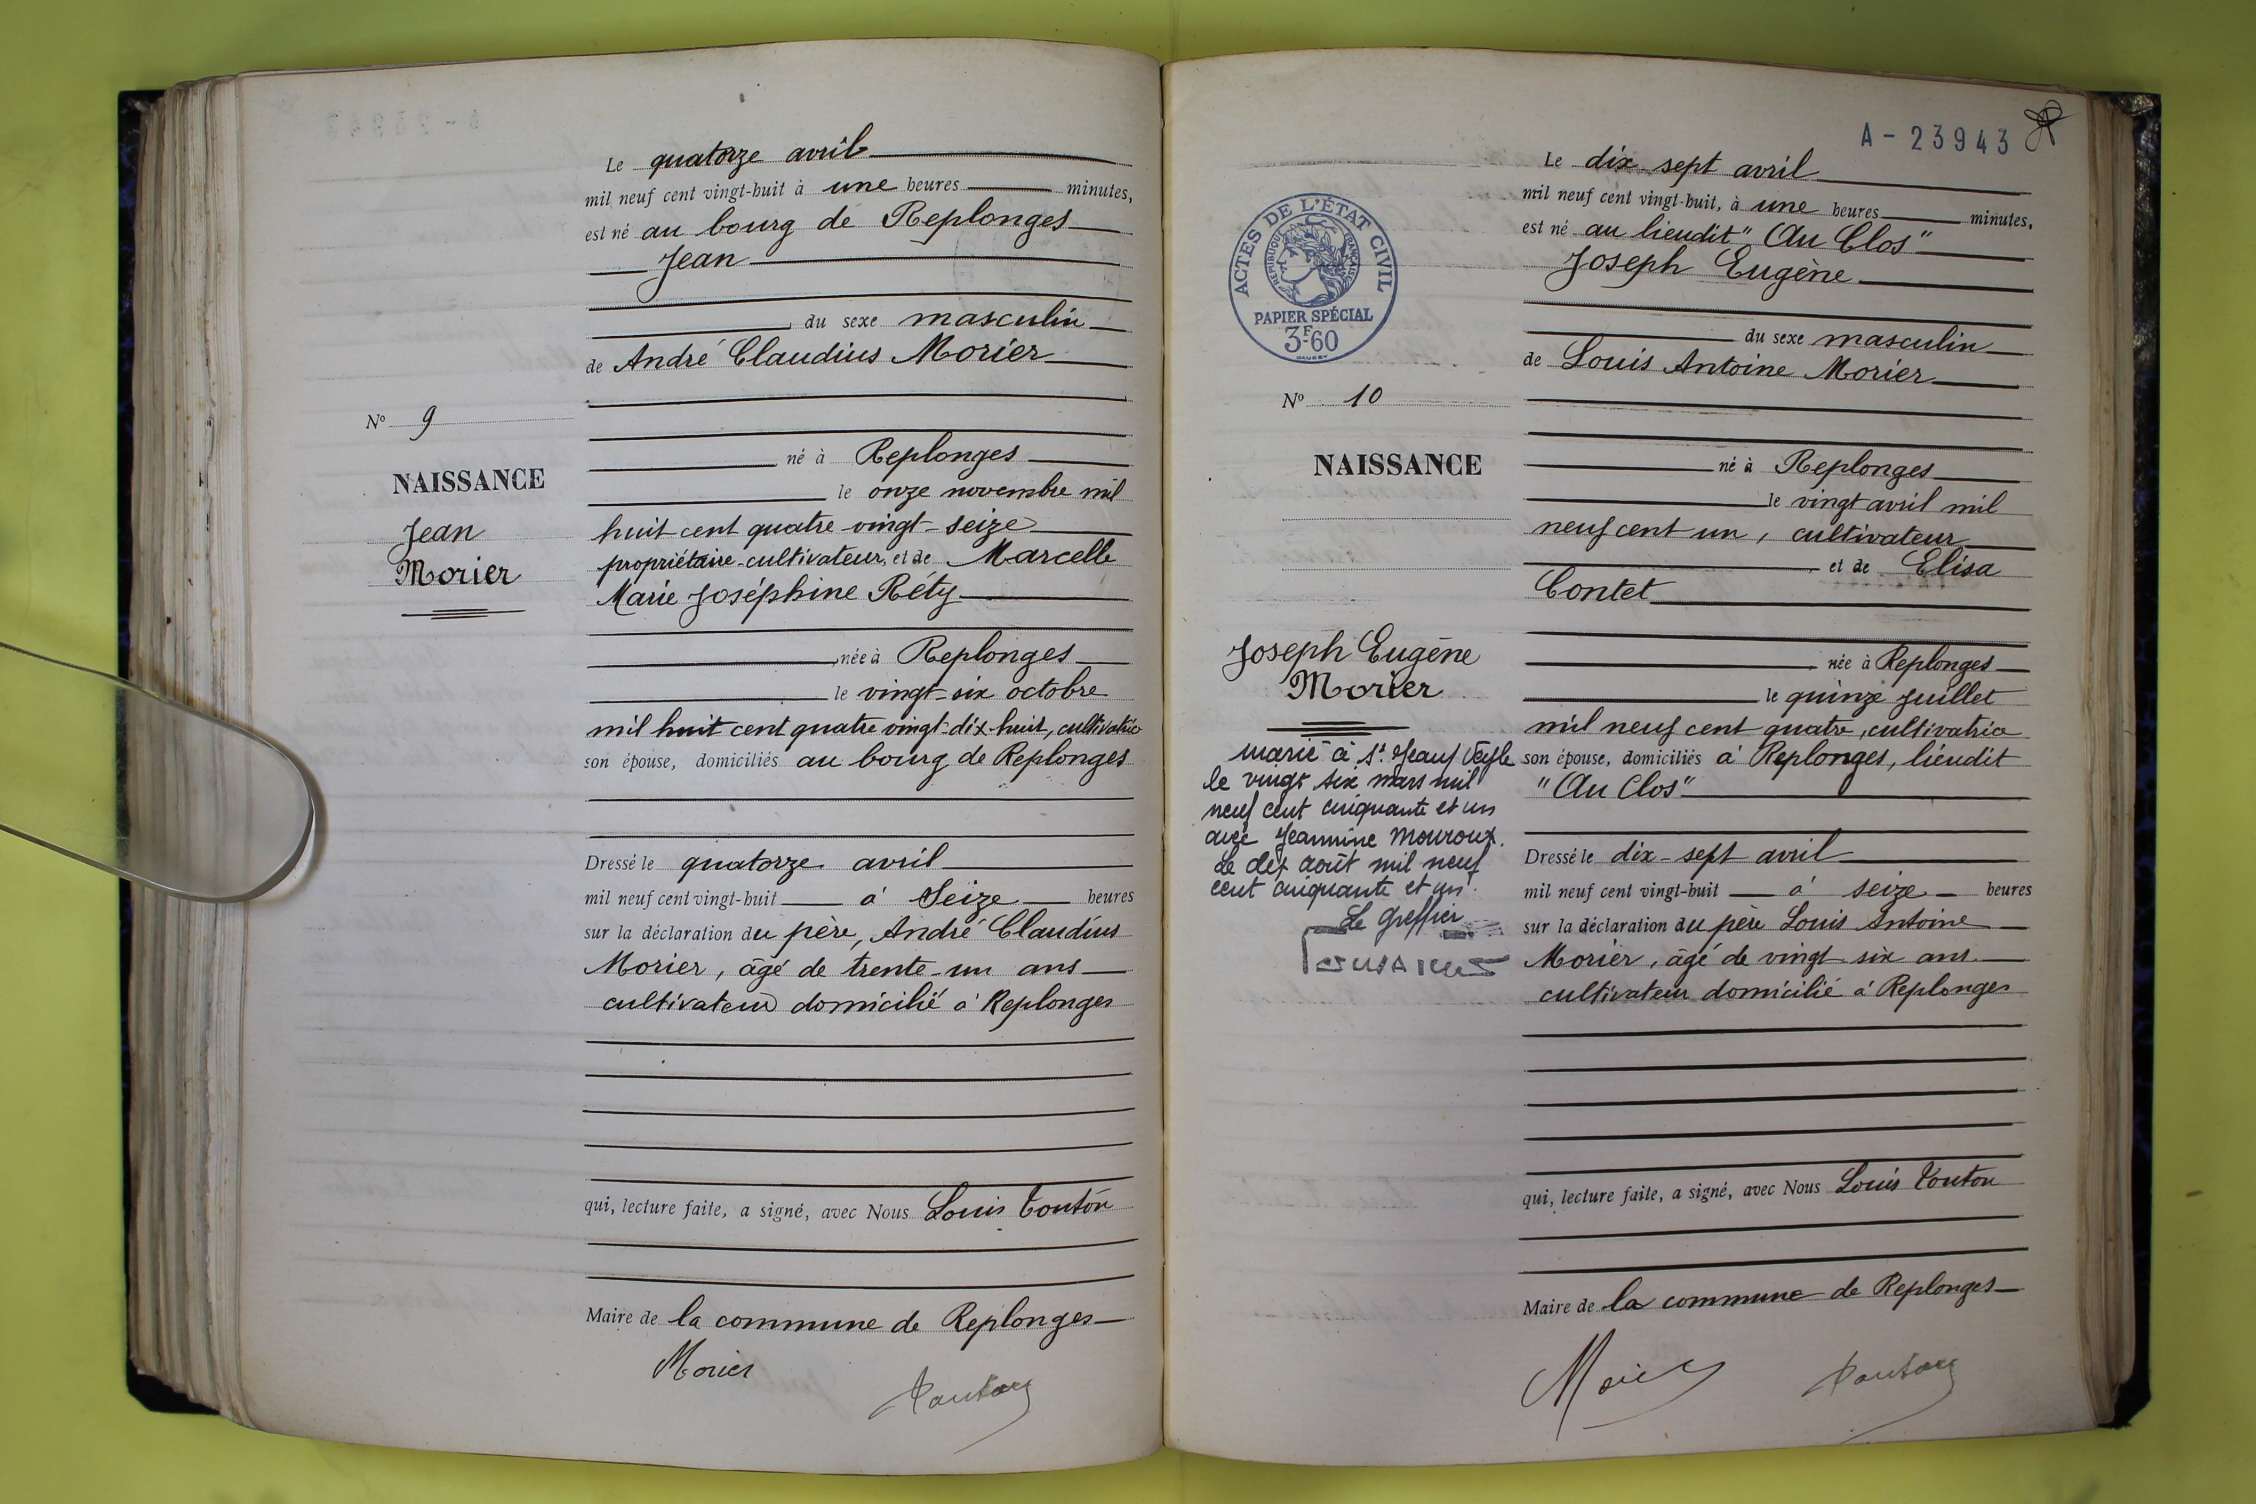 Le quatorze avril
mil neuf cent vingt-huit à une heures minutes,
est né au bourg de Replonges
Jean
, du sexe masculin
de André Claudius Morier
né à Replonges
le onze novembre mil
huit cent quatre-vingt-seize
propriétaire-cultivateur, et de Marcelle
Marie Joséphine Réty
, née à Replonges
le vingt-six octobre
mil huit cent quatre vingt-dix-huit, cultivatrice
son épouse, domiciliés au bourg de Replonges
Dressé le quatorze avril
mil neuf cent vingt-huit à Seize heures
sur la déclaration du père, André Claudius
Morier, âgé de trente-un ans
cultivateur domicilié à Replonges
qui, lecture faite, a signé, avec Nous Louis Touton
Maire de la commune de Replonges
Morier
Touton
No 9
NAISSANCE
Jean
Morier
A - 23943
Le dix sept avril
mil neuf cent vingt-huit, à une heures minutes,
est né au lieudit "Au Clos"
Joseph Eugène
du sexe masculin
de Louis Antoine Morier
né à Replonges
le vingt avril mil
neuf cent un, cultivateur
et de Elisa
Contet
née à Replonges
le quinze juillet
mil neuf cent quatre, cultivatrice
son épouse, domiciliés à Replonges, lieudit
"Au Clos"
Dressé le dix-sept avril
mil neuf cent vingt-huit à seize heures
sur la déclaration du père Louis Antoine
Morier, âgé de vingt six ans
cultivateur domicilié à Replonges
qui, lecture faite, a signé, avec Nous Louis Touton
Maire de la commune de Replonges
Morier
Touton
ACTES DE L'ÉTAT CIVIL
RÉPUBLIQUE FRANÇAISE
PAPIER SPÉCIAL
3F60
No 10
NAISSANCE
Joseph Eugène
Morier
marié à St Jean s/ Veyle
le vingt six mars mil
neuf cent cinquante et un
avec Jeannine Mouroux.
Le dix août mil neuf
cent cinquante et un.
Le Greffier